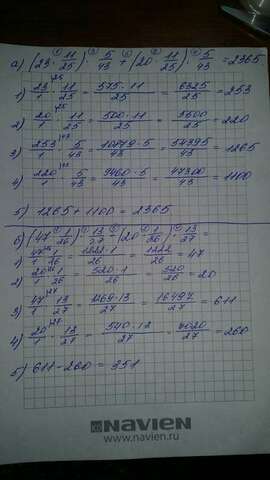 а) (23 · 11/25) · 5/43 + (20 · 11/25) · 5/43 = 2365
1) 23/1 · 11/25 = 575 · 11/25 = 6325/25 = 253
2) 20/1 · 11/25 = 500 · 11/25 = 5500/25 = 220
3) 253/1 · 5/43 = 10879 · 5/43 = 54395/43 = 1265
4) 220/1 · 5/43 = 9460 · 5/43 = 47300/43 = 1100
5) 1265 + 1100 = 2365
б) (47 · 1/26) · 13/27 - (20 · 1/26) · 13/27 =
1) 47/1 · 1/26 = 1222 · 1/26 = 1222/26 = 47
2) 20/1 · 1/26 = 520 · 1/26 = 520/26 = 20
3) 47/1 · 13/27 = 1269 · 13/27 = 16497/27 = 611
4) 20/1 · 13/27 = 540 · 13/27 = 7020/27 = 260
5) 611 - 260 = 351
NAVIEN
www.navien.ru